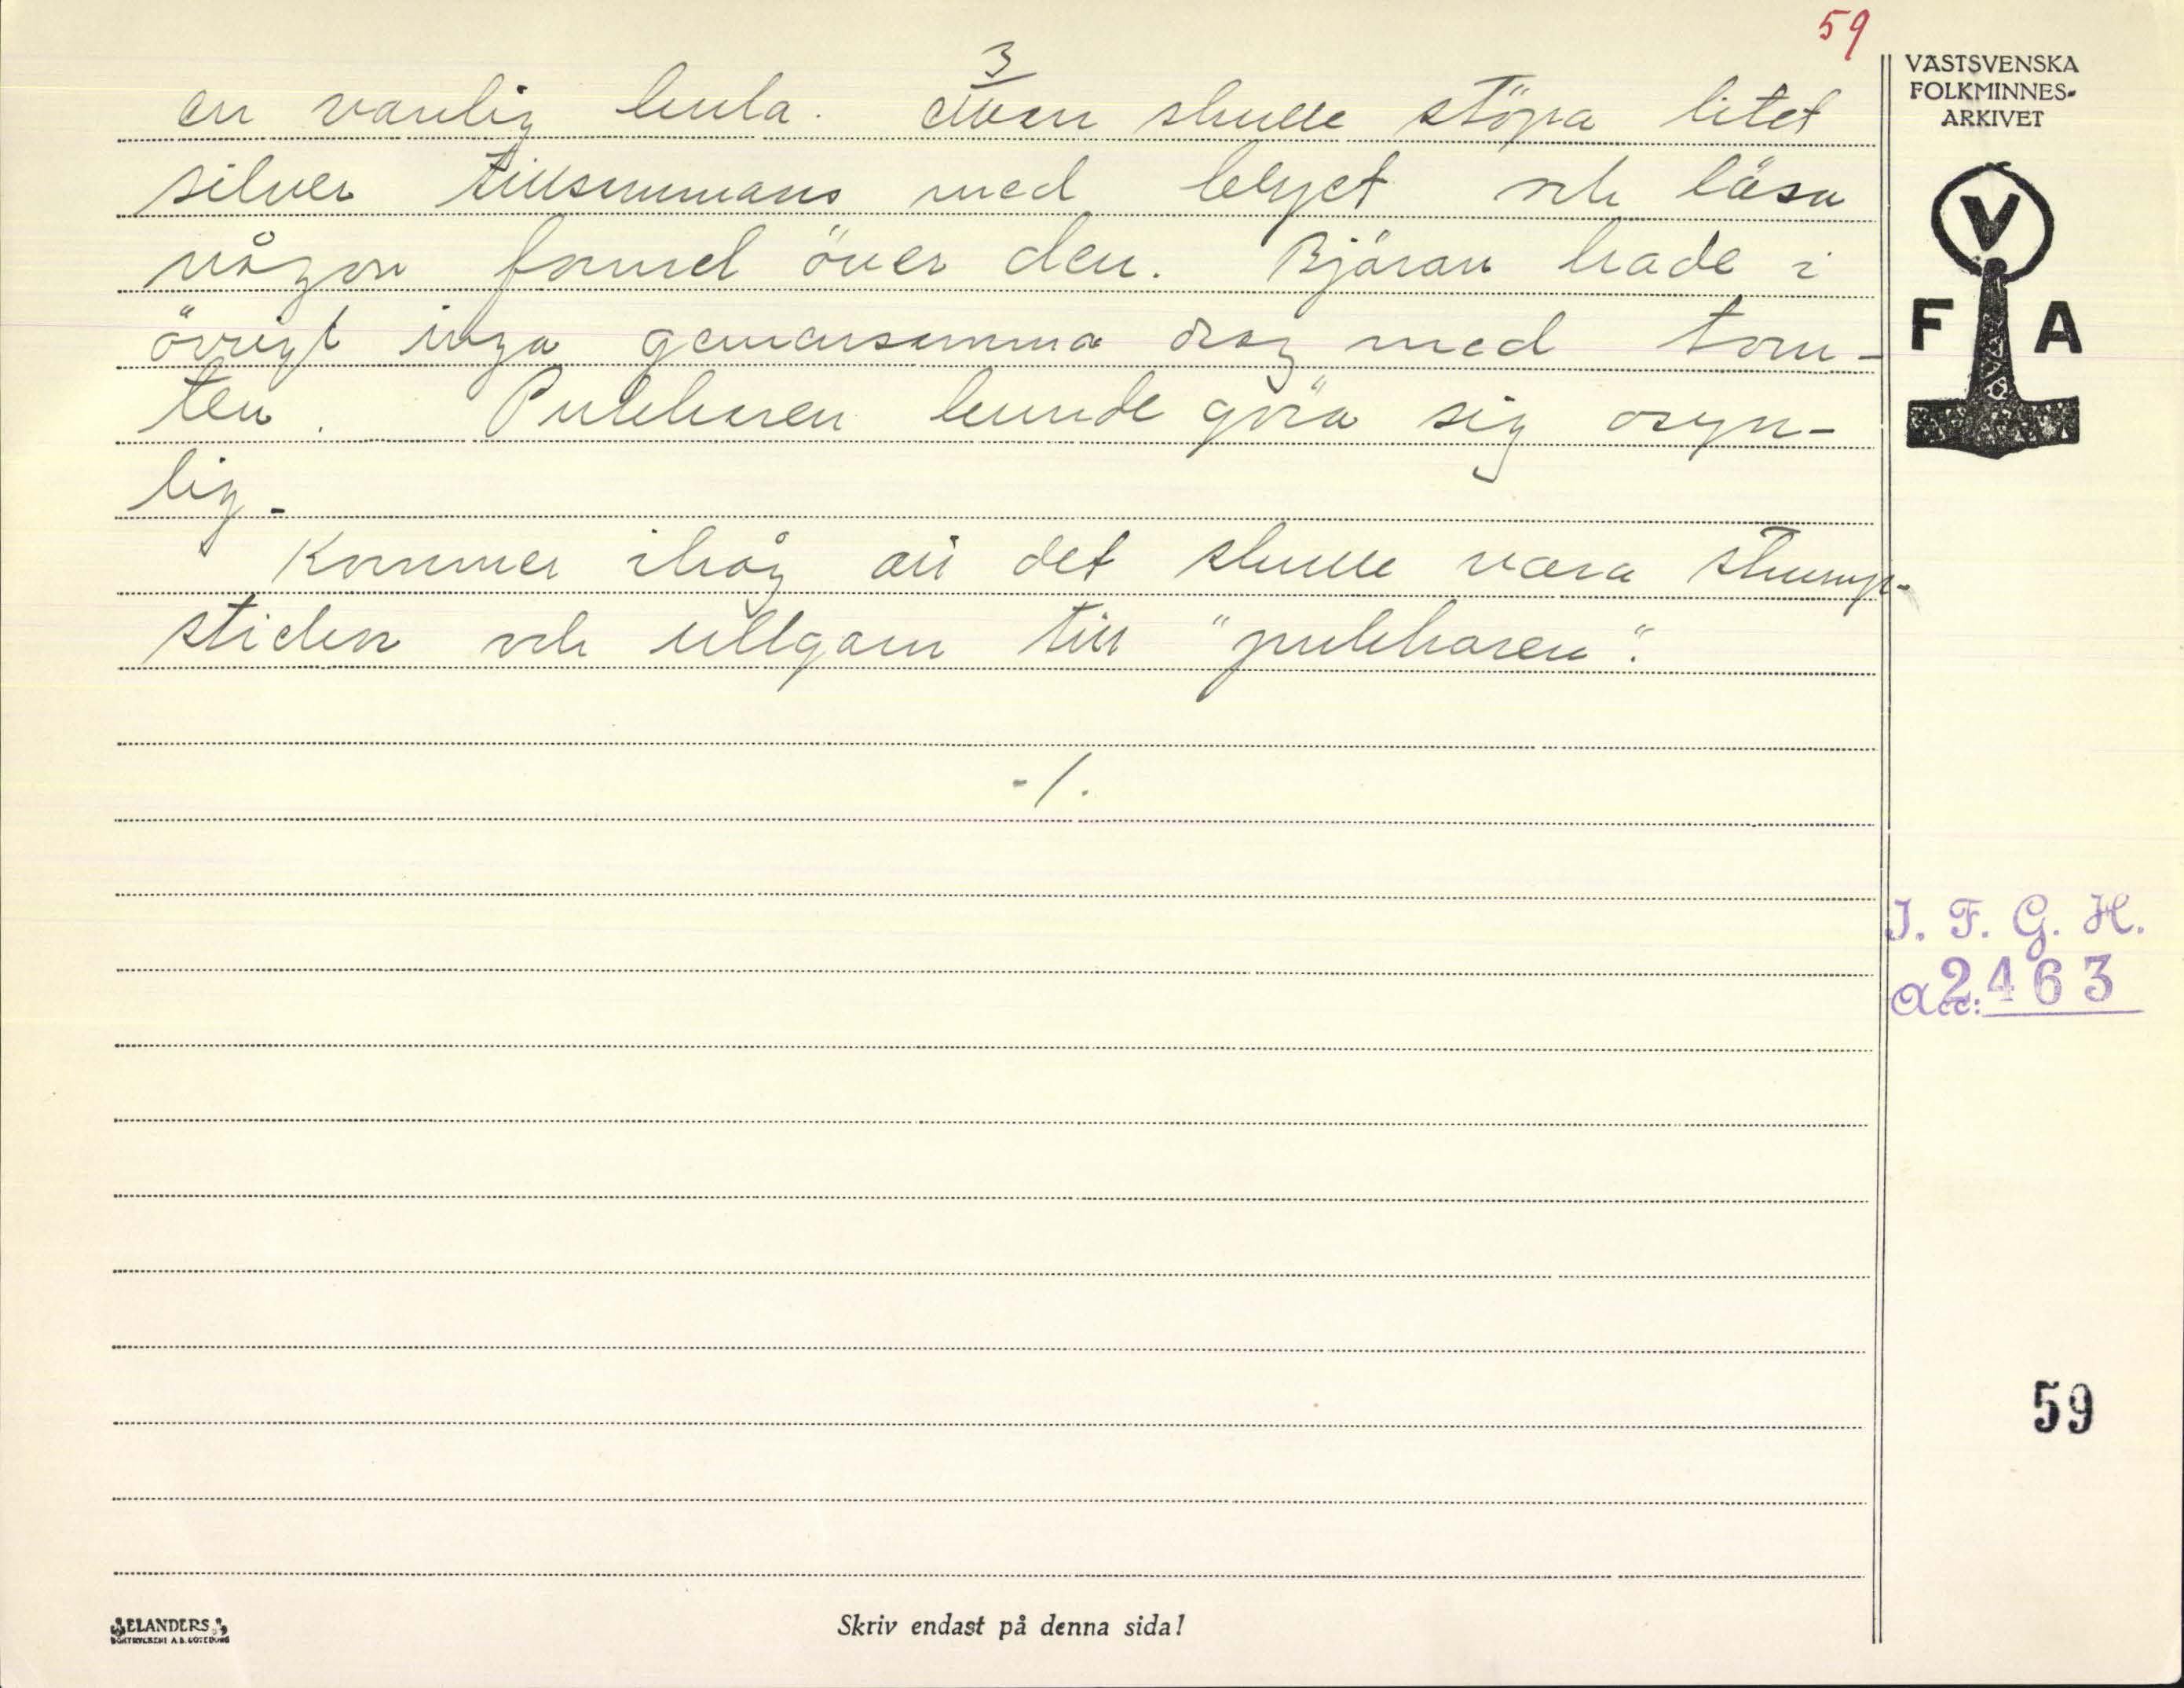 59
3
en vanlig kula. Man skulle stöpa litet
silver tillsammans med blyet och läsa
någon formel över den. Bjäran hade i
övrigt inga gemensamma drag med tom-
ten. Pukharen kunde göra sig osyn-
lig.
Kommer ihåg att det skulle vara strump-
stickor och ullgarn till "pukharen".
-/.
VÄSTSVENSKA
FOLKMINNES-
ARKIVET
V
F A
I. F. G. H.
Acc: 2463
59
ELANDERS
BOKTRYCKERI A.B. GÖTEBORG
Skriv endast på denna sida!